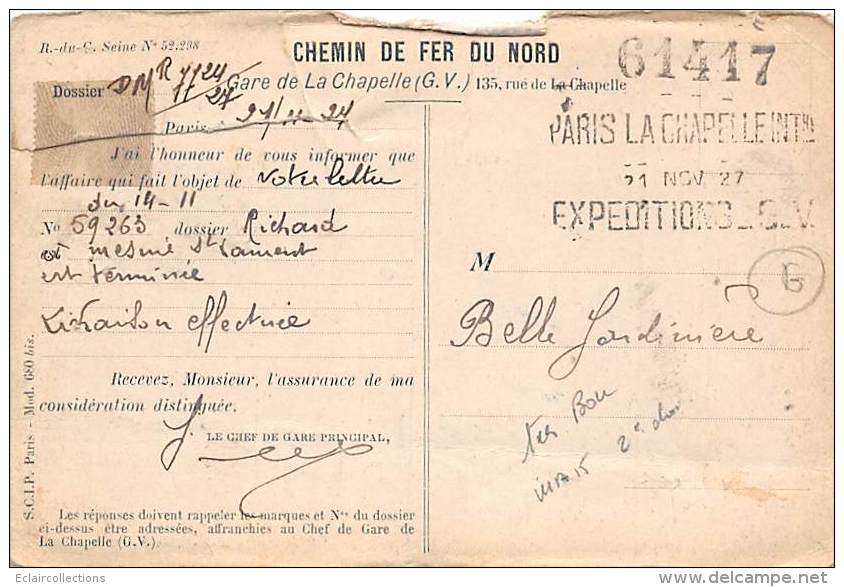 R.-du-C. Seine N° 52.298
CHEMIN DE FER DU NORD
61417
Dossier DMR 7724
27
Gare de La Chapelle (G.V.) 135, rue de La Chapelle
Paris 21-11-27
PARIS LA CHAPELLE INT
21 NOV 27
EXPEDITIONS - G.V.
J'ai l'honneur de vous informer que
l'affaire qui fait l'objet de votre lettre
du 14-11
No 59263 dossier Richard
et St Laurent
est terminée
Livraison effectuée
M
G
Belle Jardinière
Recevez, Monsieur, l'assurance de ma
considération distinguée.
LE CHEF DE GARE PRINCIPAL,
Les réponses doivent rappeler les marques et Nos du dossier
ci-dessus être adressées, affranchies au Chef de Gare de
La Chapelle (G.V.).
S.C.I.P. Paris - Mod. 680 bis.
Eclaircollections
delcampe.net